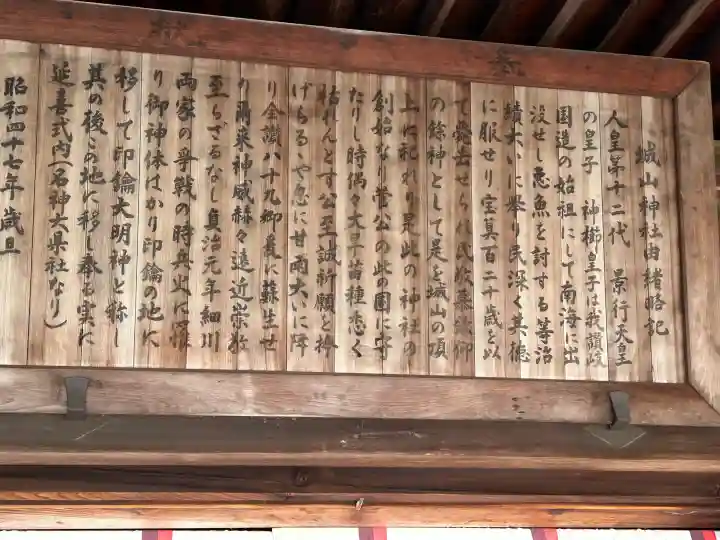 城山神社由緒略記
人皇第十二代　景行天皇
の皇子　神櫛皇子は我讃岐
国造の始祖にして南海に出
没せし悪魚を討する等治
績大いに挙り民深く其徳
に服せり宝真百二十歳を以
て薨去せらる民故慕敬仰
の餘神として是を城山の頂
上に祀れり是此の神社の
創始なり菅公の此の国に守
たりし時偶々大旱苗種悉く
枯れんとす公至誠祈願を捧
げらるゝや忽に甘雨大いに降
り全讃八十九郷忽に蘇生せ
り爾来神威赫々遠近崇敬
至らざるなし貞治元年細川
両家の爭戦の時兵火に罹
り御神体はかり印鑰の地に
移して印鑰大明神と称し
其の後この地に移し奉る実に
延喜式内(名神大県社なり)
昭和四十七年歳旦